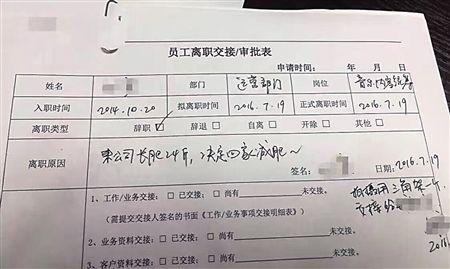 员工离职交接/审批表
申请时间： 年 月 日
姓名 部门 运营部门 岗位 音乐内容
入职时间 2014.10.20 拟离职时间 2016.7.19 正式离职时间 2016.7.19
离职类型 辞职☑ 辞退□ 自离□ 开除□ 其他□
离职原因 来公司长肥24斤，决定回家减肥～
签名： 日期：2016.7.19
三角架一个
交接给
1、工作/业务交接：□ 已交接；□ 尚有 未交接。
（需提交交接人签名的书面《工作/业务事项交接明细表》）
2、业务资料交接：□ 已交接；□ 尚有 未交接。
3、客户资料交接：□ 已交接；□ 尚有 未交接。